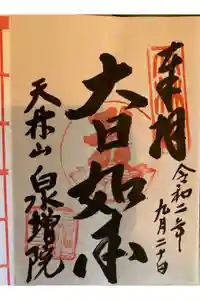 奉拝
令和二年
九月二十日
大日如来
天林山
泉増院